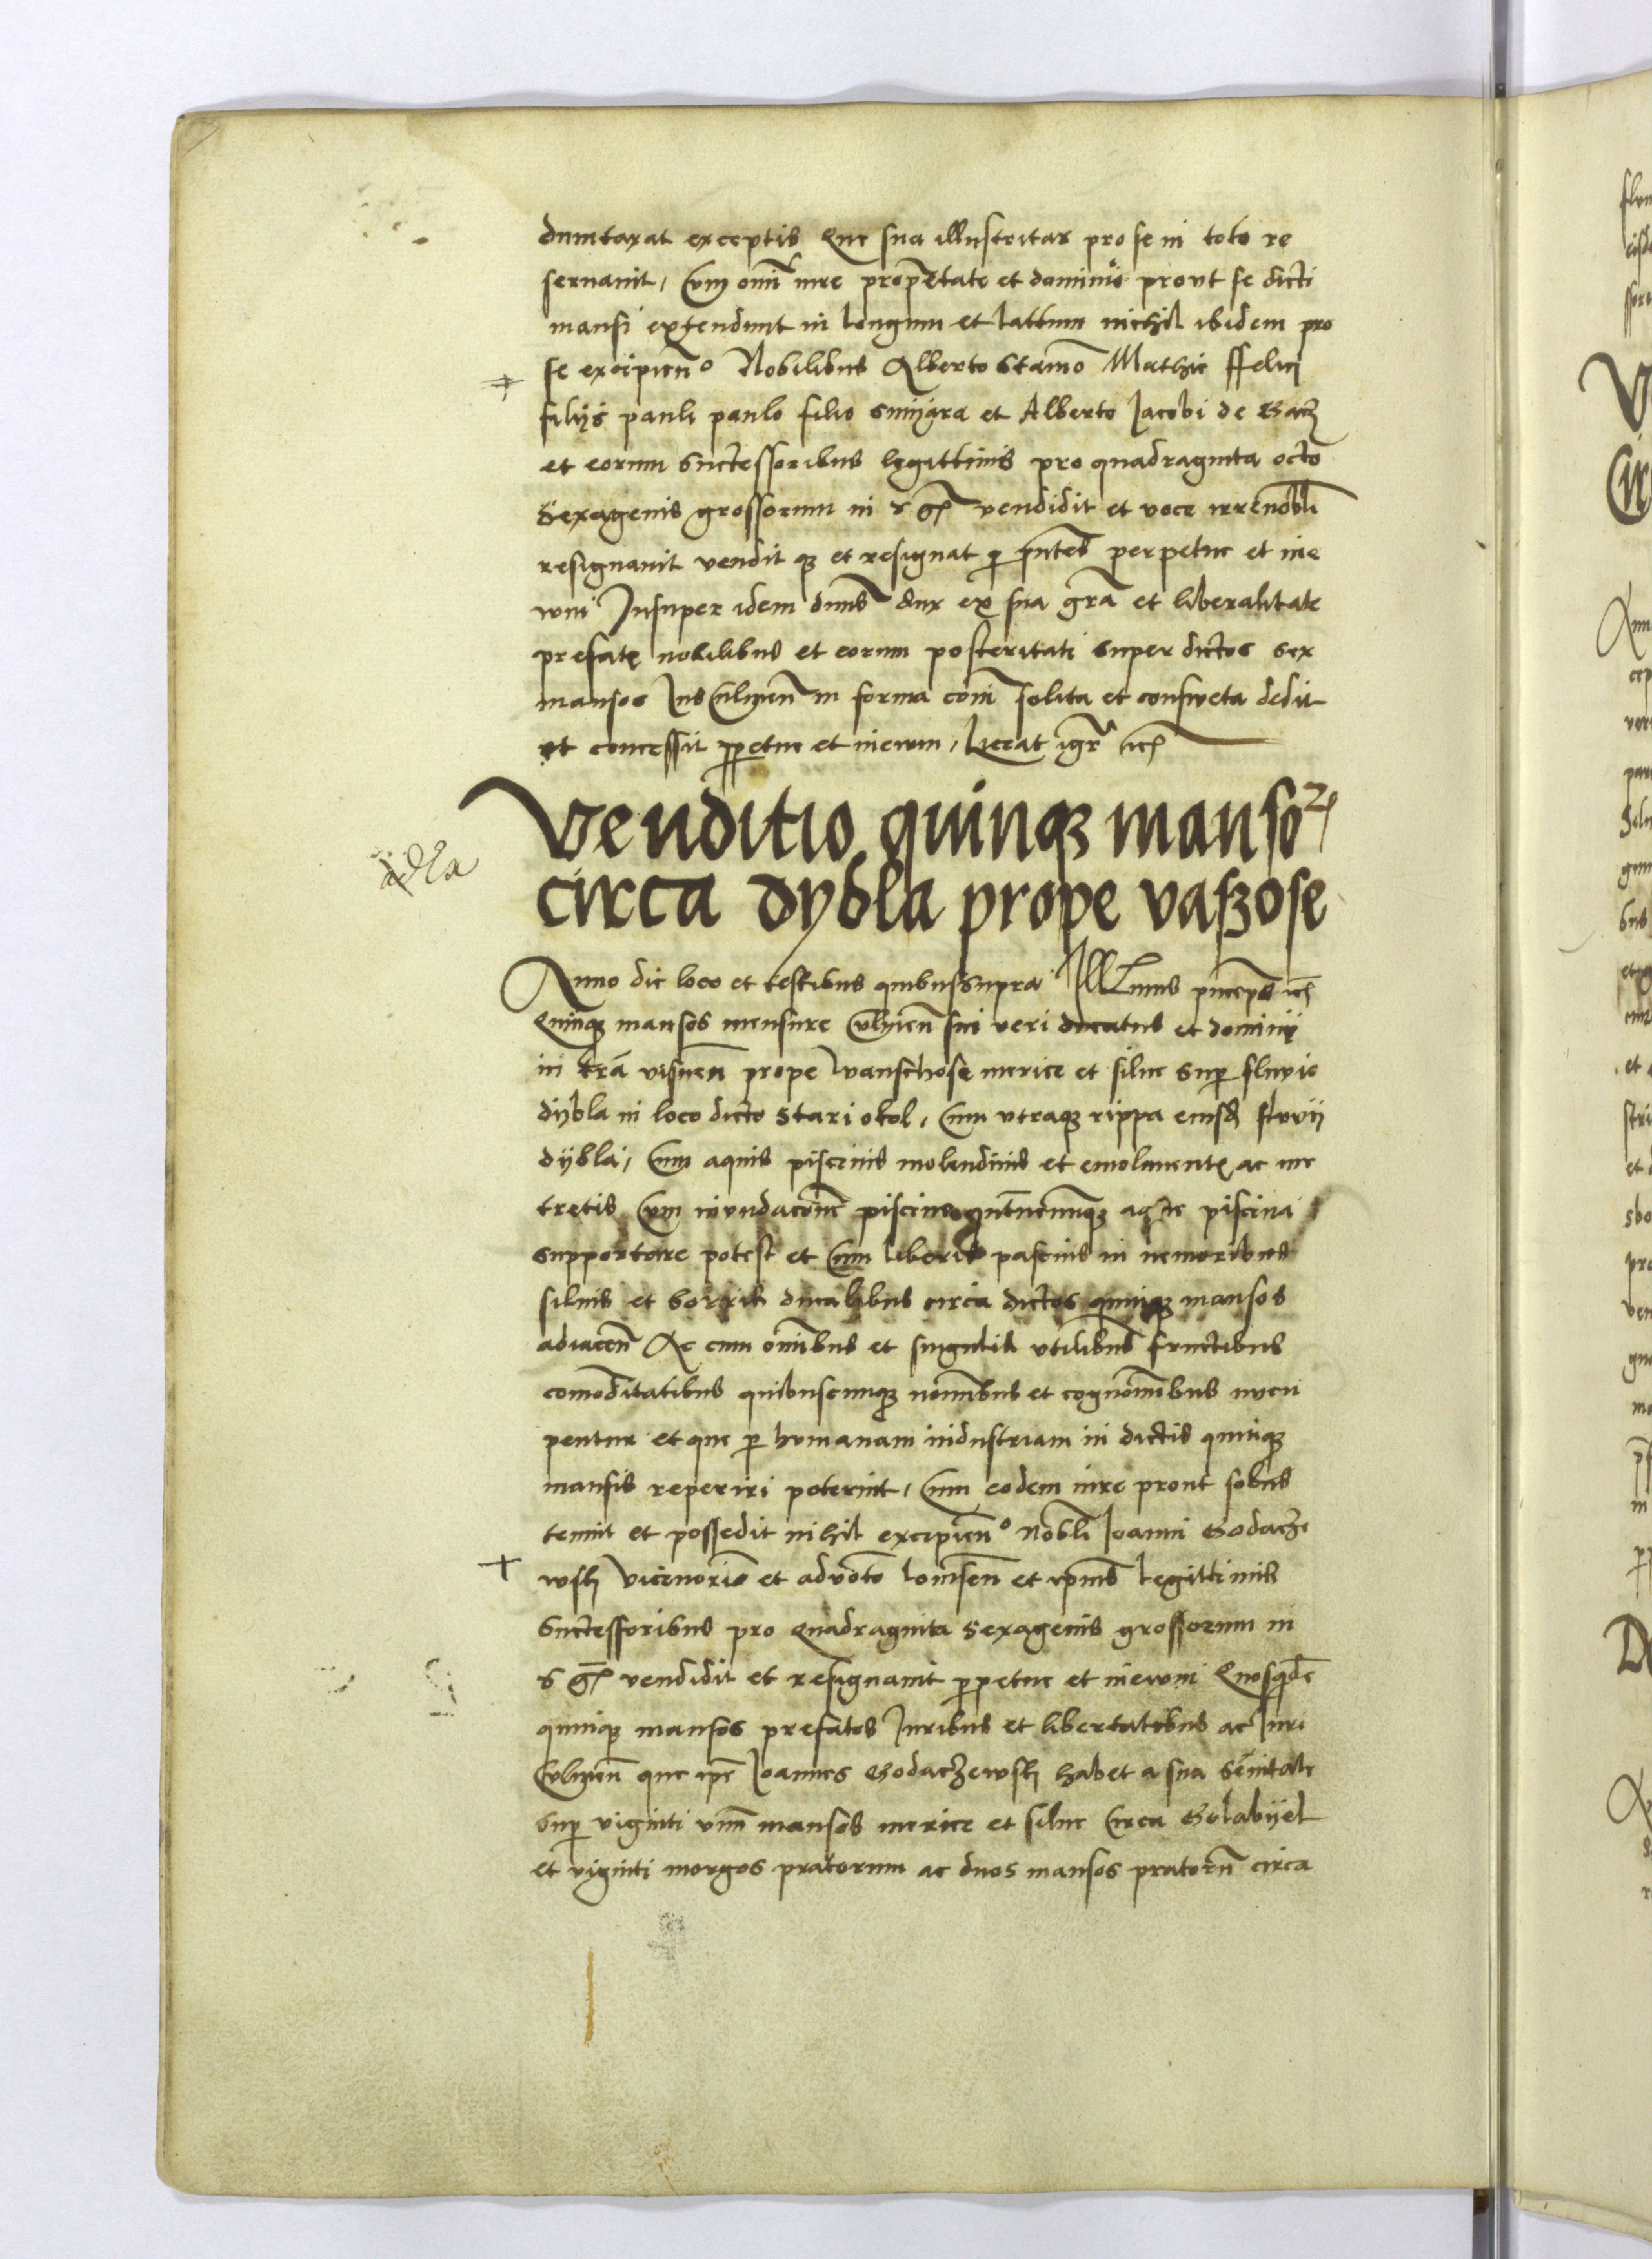 dumtaxat exceptis Que sua illustritas pro se in toto re
servavit, Cum omni iure proprietate et dominio prout se dicti
mansi extendunt in longum et lattum nichil ibidem pro
se excipiendo Nobilibus Alberto Stanislao Mathie Felici
filijs pauli paulo filio et Alberto Jacobi de
et eorum Successoribus legittimis pro quadraginta octo
Sexagenis grossorum in vendidit et voce irrevocabili
resignavit vendit que et resignat per presentes perpetue et ine
wum Insuper idem dominus dux ex sua gratia et liberalitate
prefatis nobilibus et eorum posteritati super dictos sex
mansos Jus Culmen in forma communi solita et consweta dedit
et concessit perpetue et inewum, Liceat igitur etc
Venditio quinque mansorum
circa dybla prope vaßose
Anno die loco et testibus quibus supra Illustrissimus princeps etc
Quinque mansos mensure Culmen sui veri ducatus et dominij
in terra visnen prope Wanschose merice et silue super fluvio
dybla in loco dicto Stari okol, Cum utraque rippa eiusdem fluvij
dybla, Cum aquis piscinis molendinis et emolimentis ac me
tretis Cum inundacione piscine quantumcunque aque piscina
supportare potest et Cum liberis pascuis in nemoribus
siluis et borris ducalibus circa dictos quinque mansos
adiacen Ac cum omnibus et singulis utilibus fructibus
comoditatibus quibuscunque nominibus et cognominibus nuncu
pentur et que per humanam industriam in dictis quinque
mansis reperiri poterint, Cum eodem iure prout solus
tenuit et possedit nihil excipiendo Nobili Joanni Godacze
wsky Vicenorie et advocato lomsen et ipsius Legittimis
Successoribus pro Quadraginta Sexagenis grossorum in
vendidit et resignavit perpetue et inewum Quosquidem
quinque mansos prefatos Juribus et libertatibus ac Juri
Culmen que ipse Joannes Godaczewsky habet a sua Serenitate
super viginti unum mansos merice et silue Circa Golabyel
et viginti morgos pratorum ac duos mansos pratorum circa